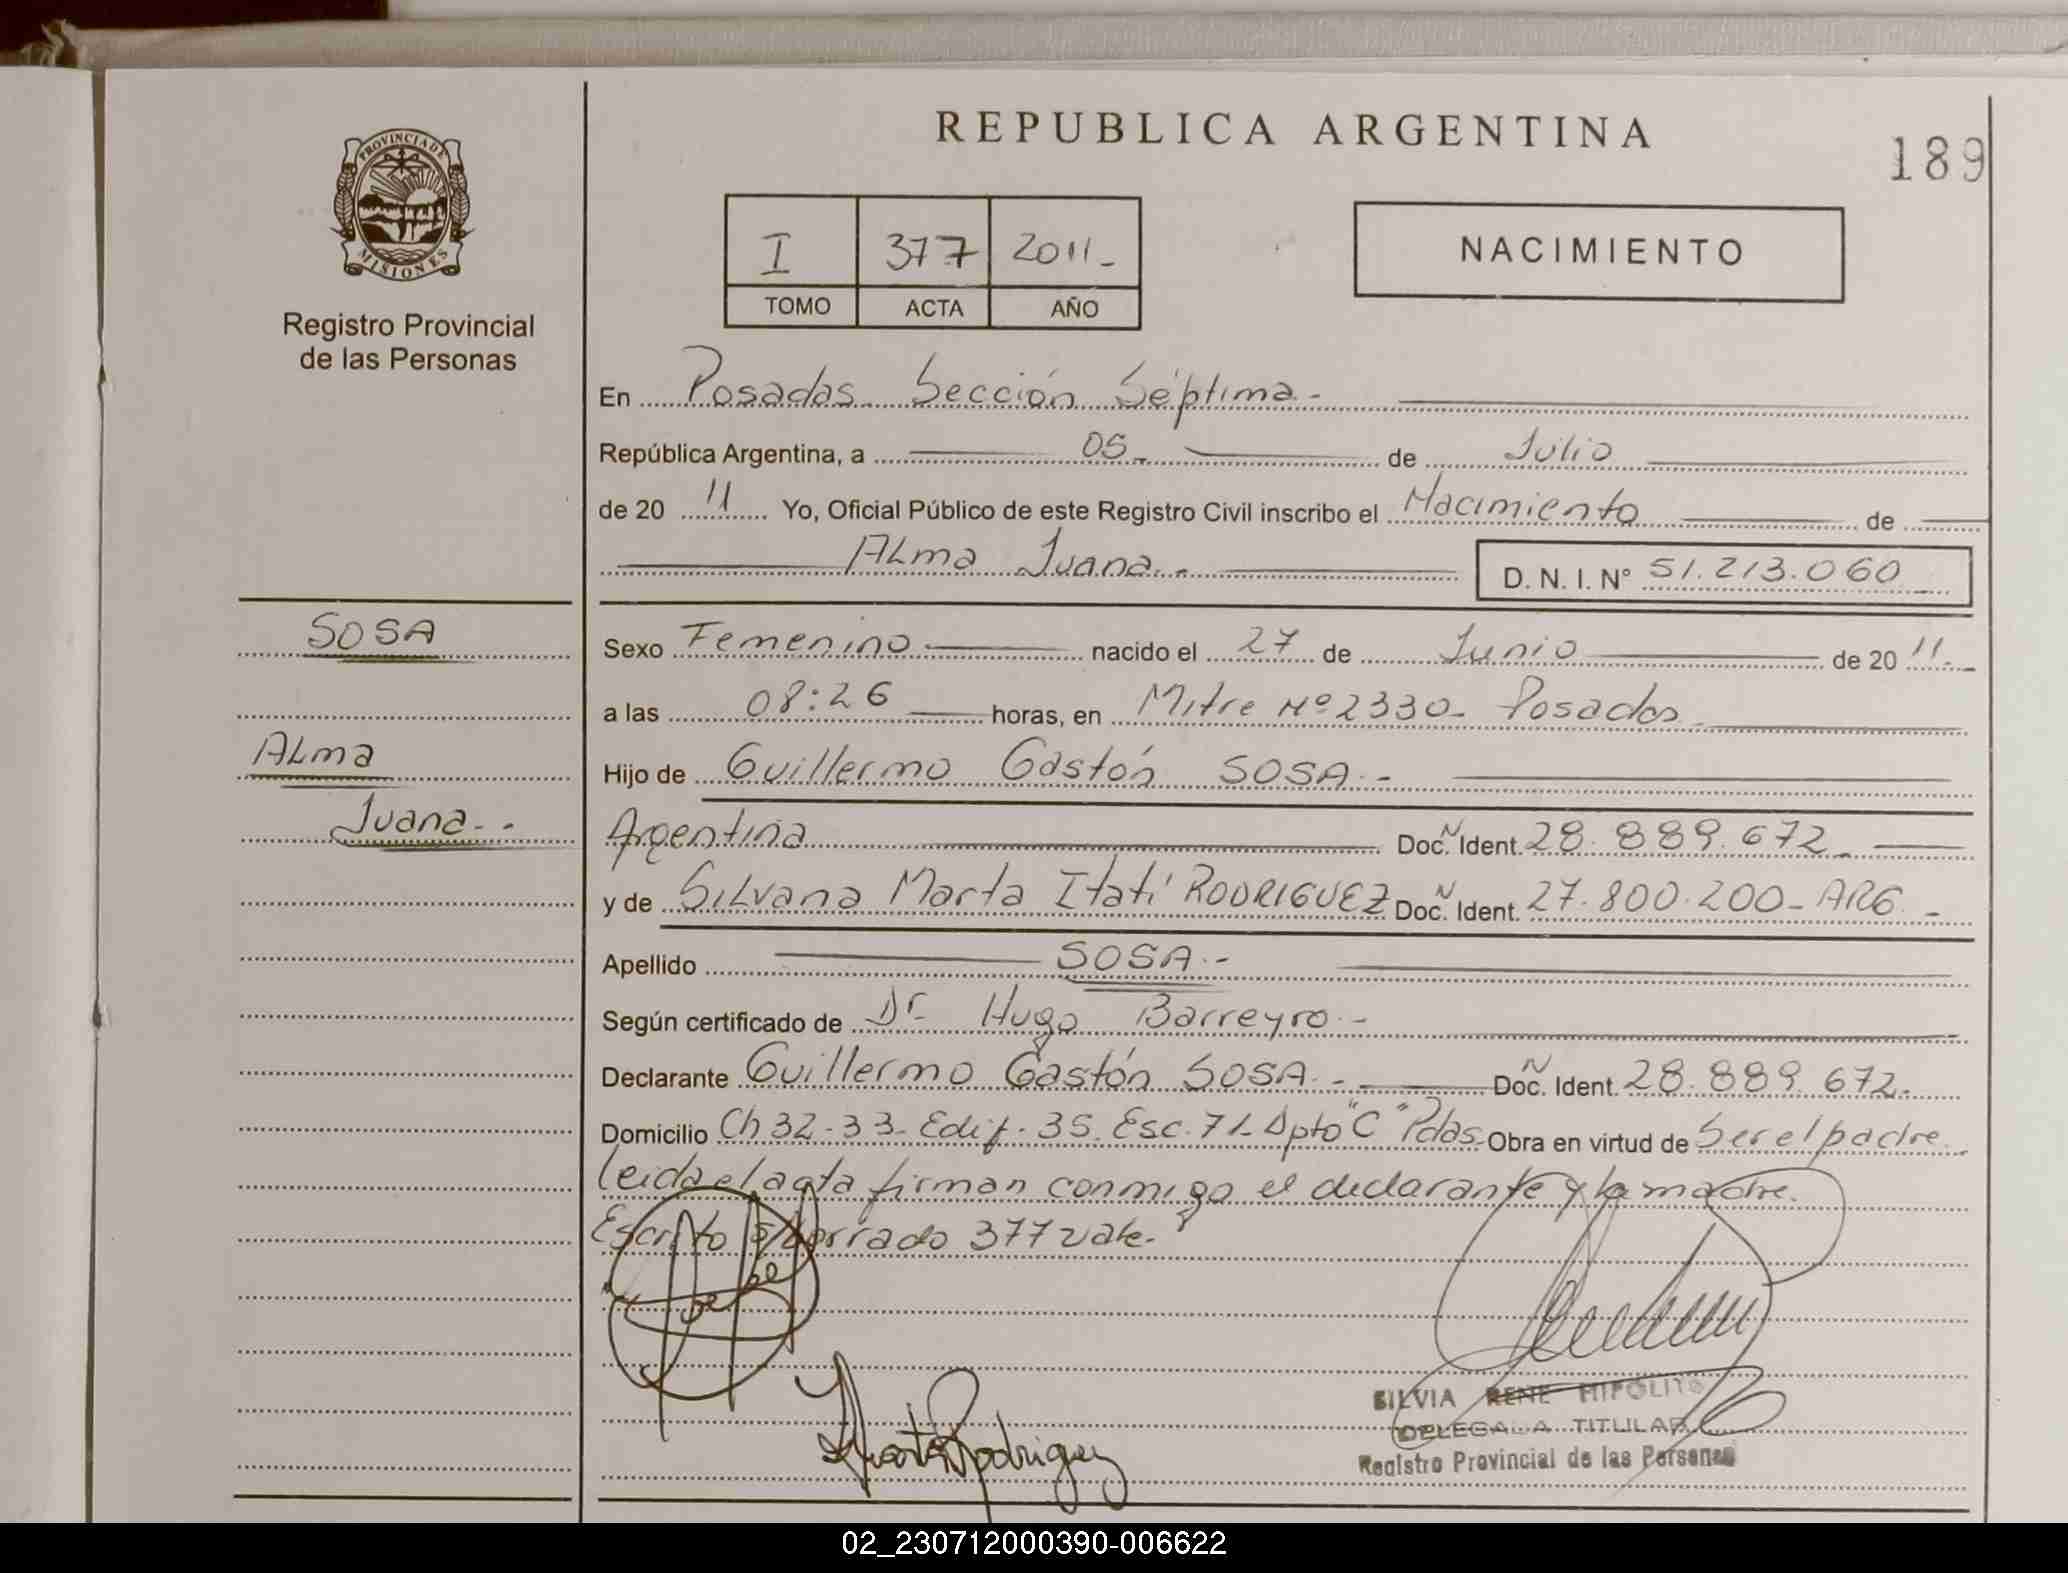 REPUBLICA ARGENTINA
189
PROVINCIA DE
MISIONES
Registro Provincial
de las Personas
I 377 2011-
TOMO ACTA AÑO
NACIMIENTO
En Posadas Sección Séptima -
República Argentina, a 05- de Julio
de 20 11 Yo, Oficial Público de este Registro Civil inscribo el Nacimiento de
ALma Juana.-
D. N. I. N° 51.213.060
SOSA
ALma
Juana.-
Sexo Femenino nacido el 27 de Junio de 20 11.-
a las 08:26 horas, en Mitre Nº 2330- Posadas
Hijo de Guillermo Gastón SOSA.-
Argentina Doc. N Ident. 28.889.672-
y de SiLvana Marta Itatí RODRIGUEZ Doc. N Ident. 27.800.200- ARG.-
Apellido SOSA.-
Según certificado de Dr. Hugo Barreyro-
Declarante Guillermo Gastón SOSA.- Doc. N Ident. 28.889.672.
Domicilio Ch 32-33- Edif. 35. Esc. 71- Dpto "C" Pdas. Obra en virtud de Ser el padre.
Leida el acta firman conmigo el declarante y la madre.
Escrito s/borrado 377 vale-
SILVIA RENE HIPOLITO
DELEGADA TITULAR
Registro Provincial de las Personas
02_230712000390-006622